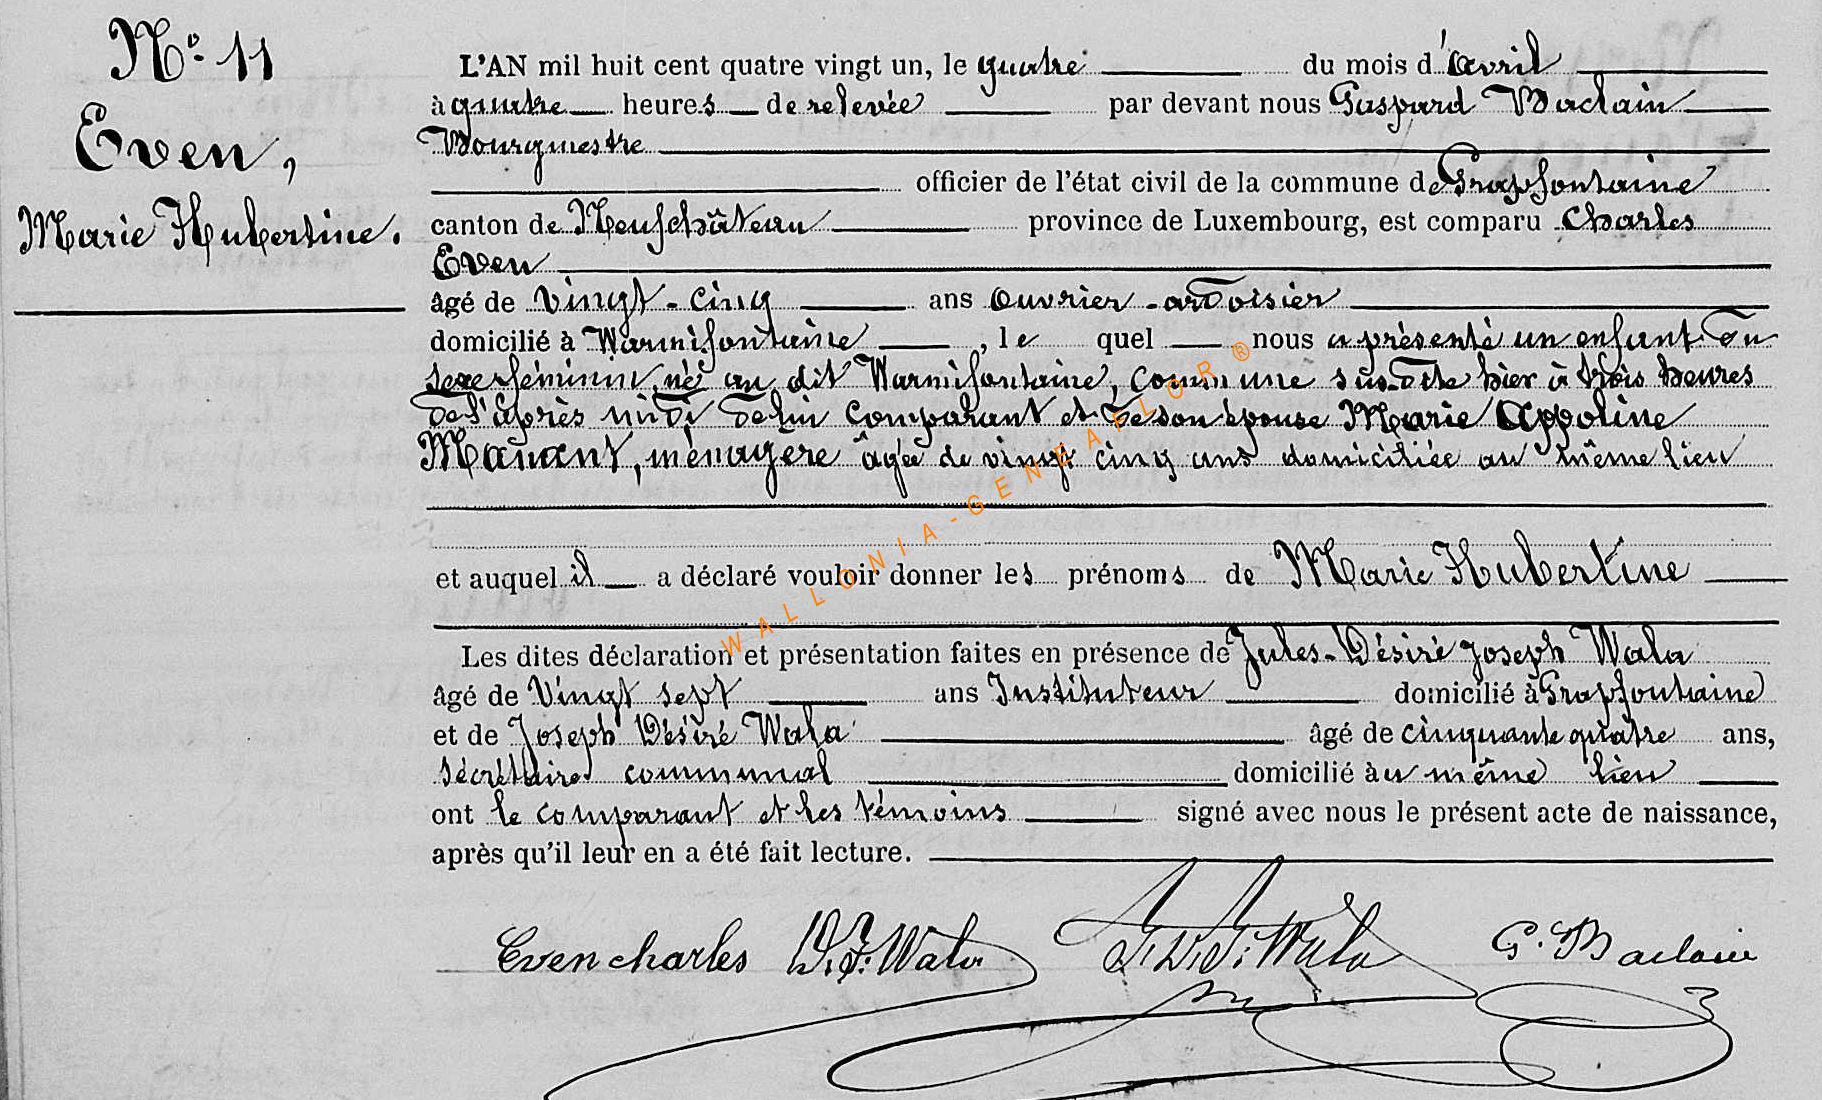 N° 11
Even,
Marie Hubertine.
L'AN mil huit cent quatre vingt un, le quatre du mois d'avril
à quatre heures de relevée par devant nous Gaspard Baclain
Bourgmestre
officier de l'état civil de la commune de Grapfontaine
canton de Neufchâteau province de Luxembourg, est comparu Charles
Even
âgé de vingt-cinq ans ouvrier-ardoisier
domicilié à Warmifontaine, le quel nous a présenté un enfant du
sexe féminin, né au dit Warmifontaine, commune sus-dite hier à trois heures
de l'après midi de lui comparant et de son épouse Marie Appoline
Manant, ménagère âgée de vingt cinq ans domiciliée au même lieu
et auquel il a déclaré vouloir donner les prénoms de Marie Hubertine
Les dites déclaration et présentation faites en présence de Jules-Désiré Joseph Wala
âgé de Vingt sept ans Instituteur domicilié à Grapfontaine
et de Joseph Désiré Wala âgé de cinquante quatre ans,
sécrétaire communal domicilié àu même lieu
ont le comparant et les témoins signé avec nous le présent acte de naissance,
après qu'il leur en a été fait lecture.
Even charles D. J. Wala J. D. J. Wala G. Baclain
WALLONIA-GENEAFLOR ®